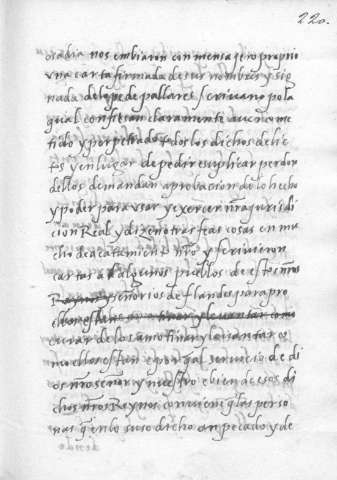 220.
osadia nos embiaron con mensajero proprio
vna carta firmada de sus nombres y sig
nada de lope de pallares scriuano por la
qual confiesan claramente auer come
tido y perpetrado todos los dichos delic
tos y en lugar de pedir e suplicar perdon
dellos demandan aprobacion de lo hecho
y poder para vsar y exercer nra jurisdi
cion Real y dizen otras feas cosas en mu
cho desacatamiento nro y scriuieron
cartas a algunos pueblos destos nros
Reynos y señorios de flandes para pro
curar de los amotinar y leuantar como
ellos estan e por q al seruicio de di
os nro señor y nuestro e bien de esos di
chos nros Reynos conuiene q las perso
nas q en lo suso dicho an pecado y de